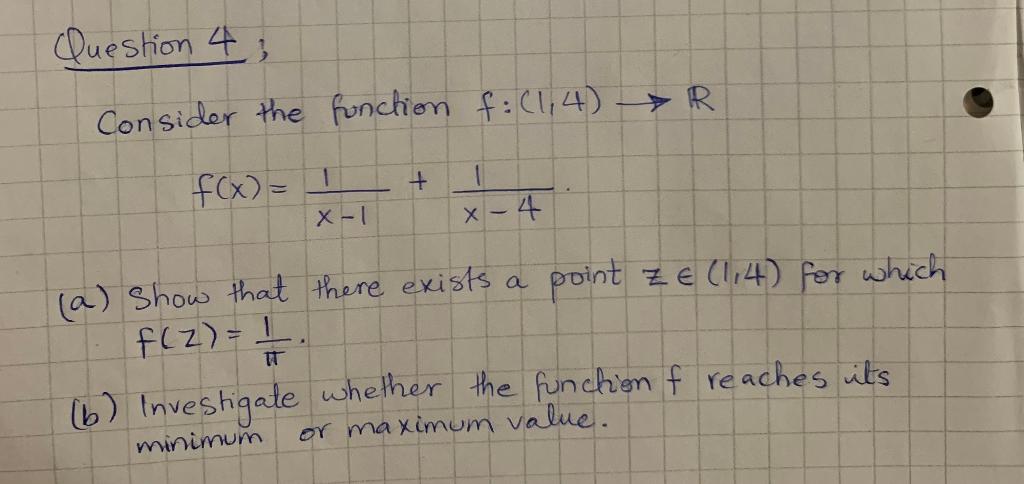 Question 4;
Consider the function f:(1,4) → ℝ
f(x) = 1/(x-1) + 1/(x-4).
(a) Show that there exists a point z ∈ (1,4) for which
f(z) = 1/π.
(b) Investigate whether the function f reaches its
minimum or maximum value.